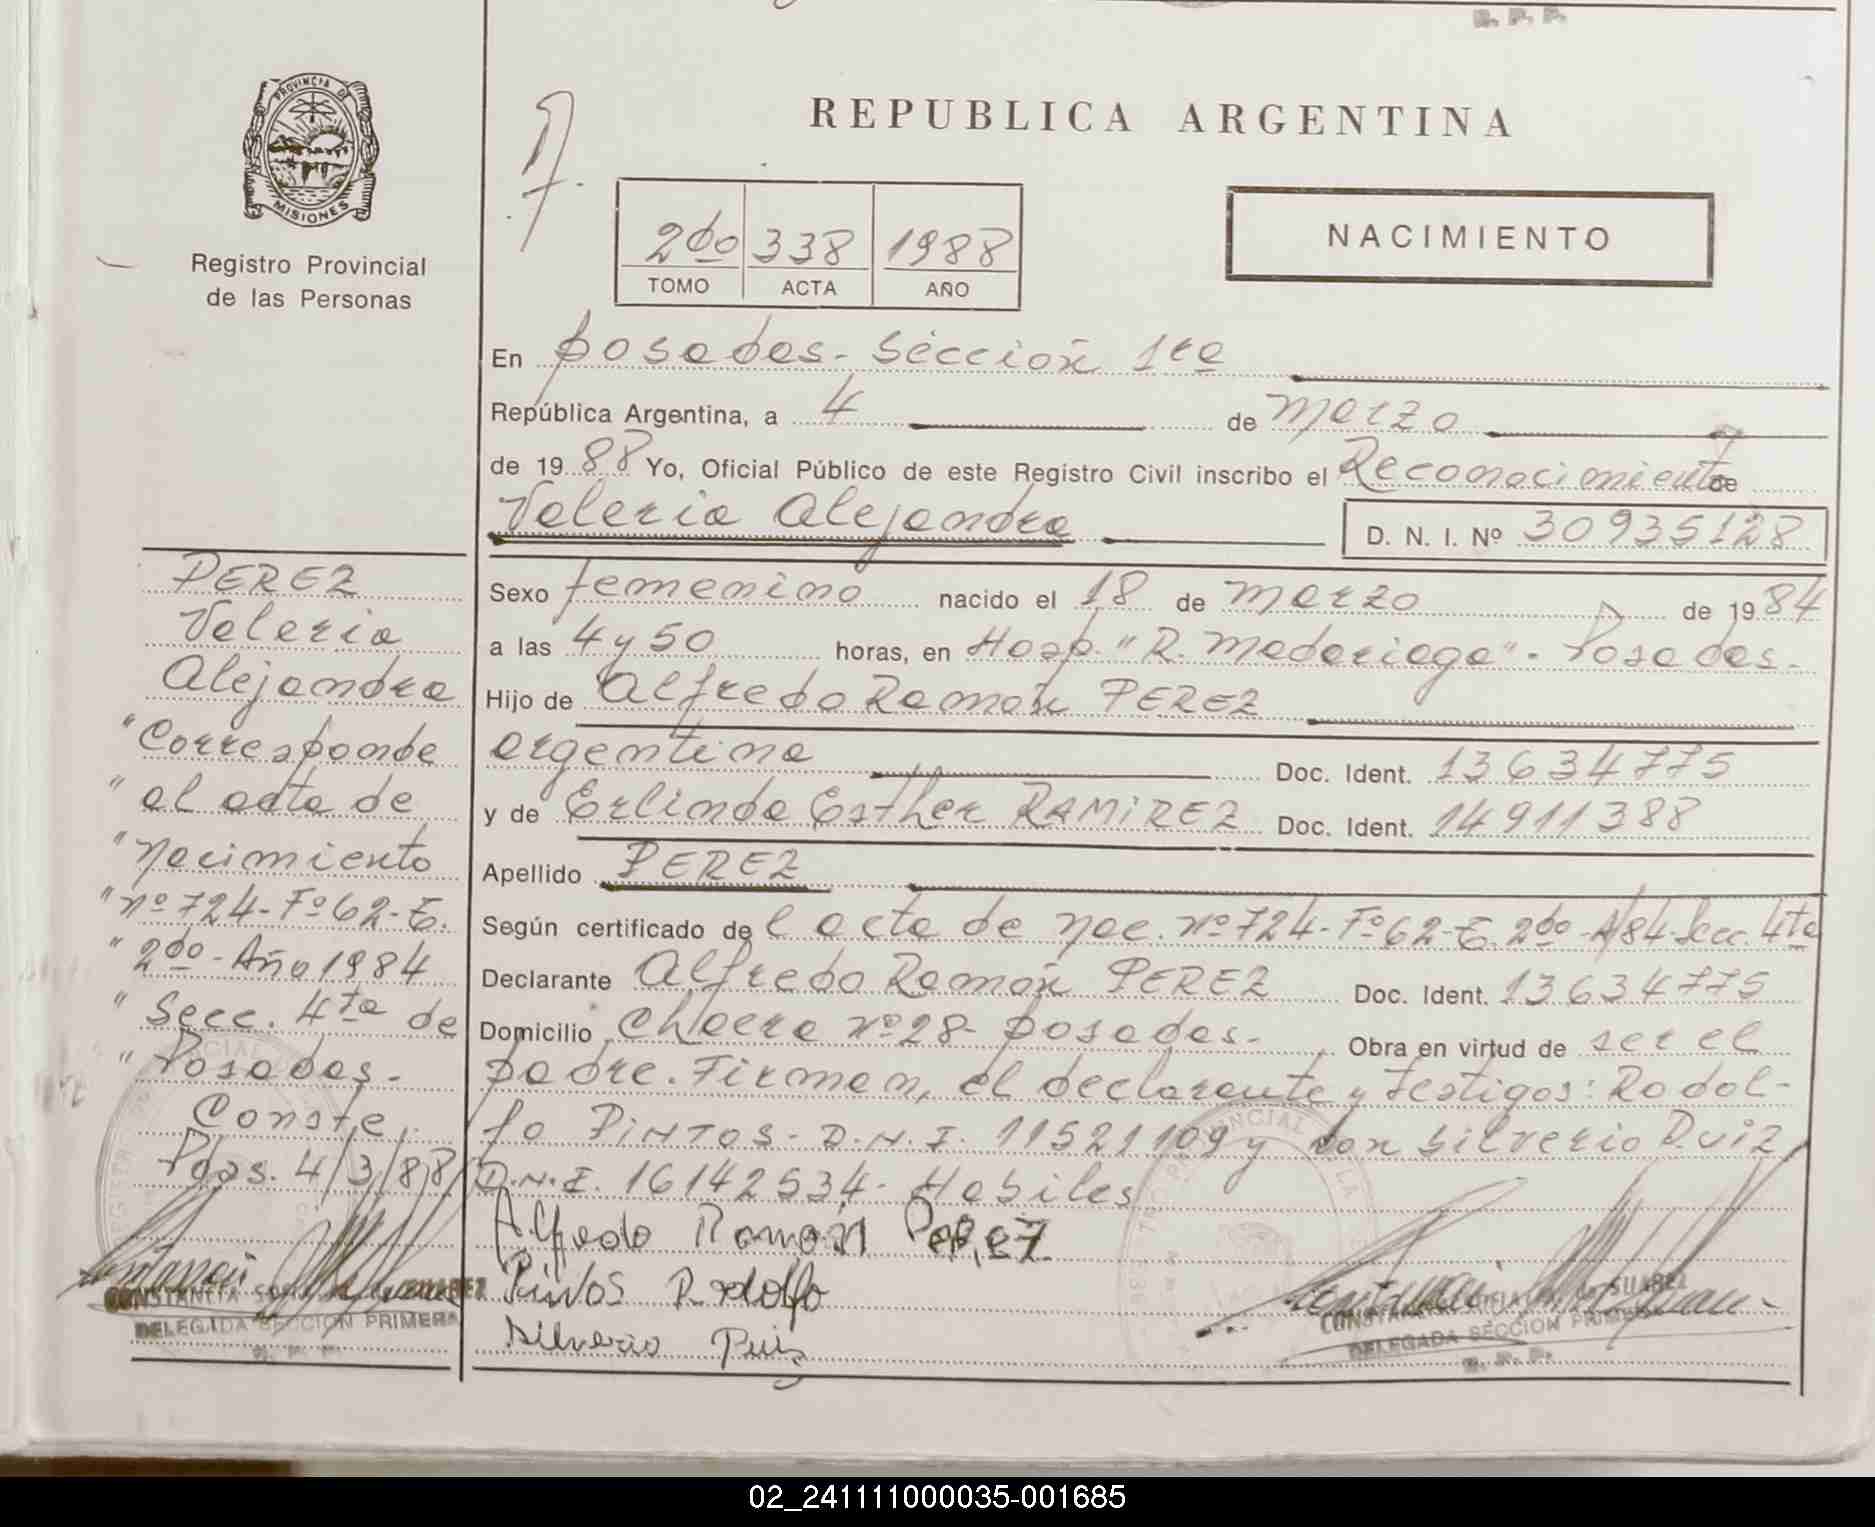 R. P. P.
PROVINCIA DE
MISIONES
Registro Provincial
de las Personas
REPUBLICA ARGENTINA
NACIMIENTO
2do 338 1988
TOMO ACTA AÑO
En Posadas - Sección 1ra
República Argentina, a 4 de Marzo
de 1988 Yo, Oficial Público de este Registro Civil inscribo el Reconocimiento de
Valeria Alejandra D. N. I. Nº 30935128
Sexo femenino nacido el 18 de marzo de 1984
a las 4 y 50 horas, en Hosp. "R. Madariaga" - Posadas -
Hijo de Alfredo Ramón PEREZ
argentino Doc. Ident. 13634775
y de Erlinda Esther RAMIREZ Doc. Ident. 14911388
Apellido PEREZ
Según certificado del acta de Nac. Nº 724 - Fº 62 - T. 2do - A/84 - Secc. 4ta
Declarante Alfredo Ramón PEREZ Doc. Ident. 13634775
Domicilio Chacra Nº 28 - Posadas - Obra en virtud de ser el
padre. Firman, el declarante y testigos: Rodol-
fo PINTOS - D.N.I. 11521109 y don Silverio Ruiz
D.N.I. 16142534 - Habiles
Alfredo Ramón Perez
Pintos Rodolfo
Silverio Ruiz
DELEGADA SECCION PRIMERA
R. P. P.
PEREZ
Valeria
Alejandra
"Corresponde
"al acta de
"Nacimiento
"nº 724 - Fº 62 - T.
"2do - Año 1984
"Secc. 4ta de
"Posadas -
Conste.
Pdas. 4/3/88
CONSTANCIA SUAREZ
DELEGADA SECCION PRIMERA
R. P. P.
02_241111000035-001685